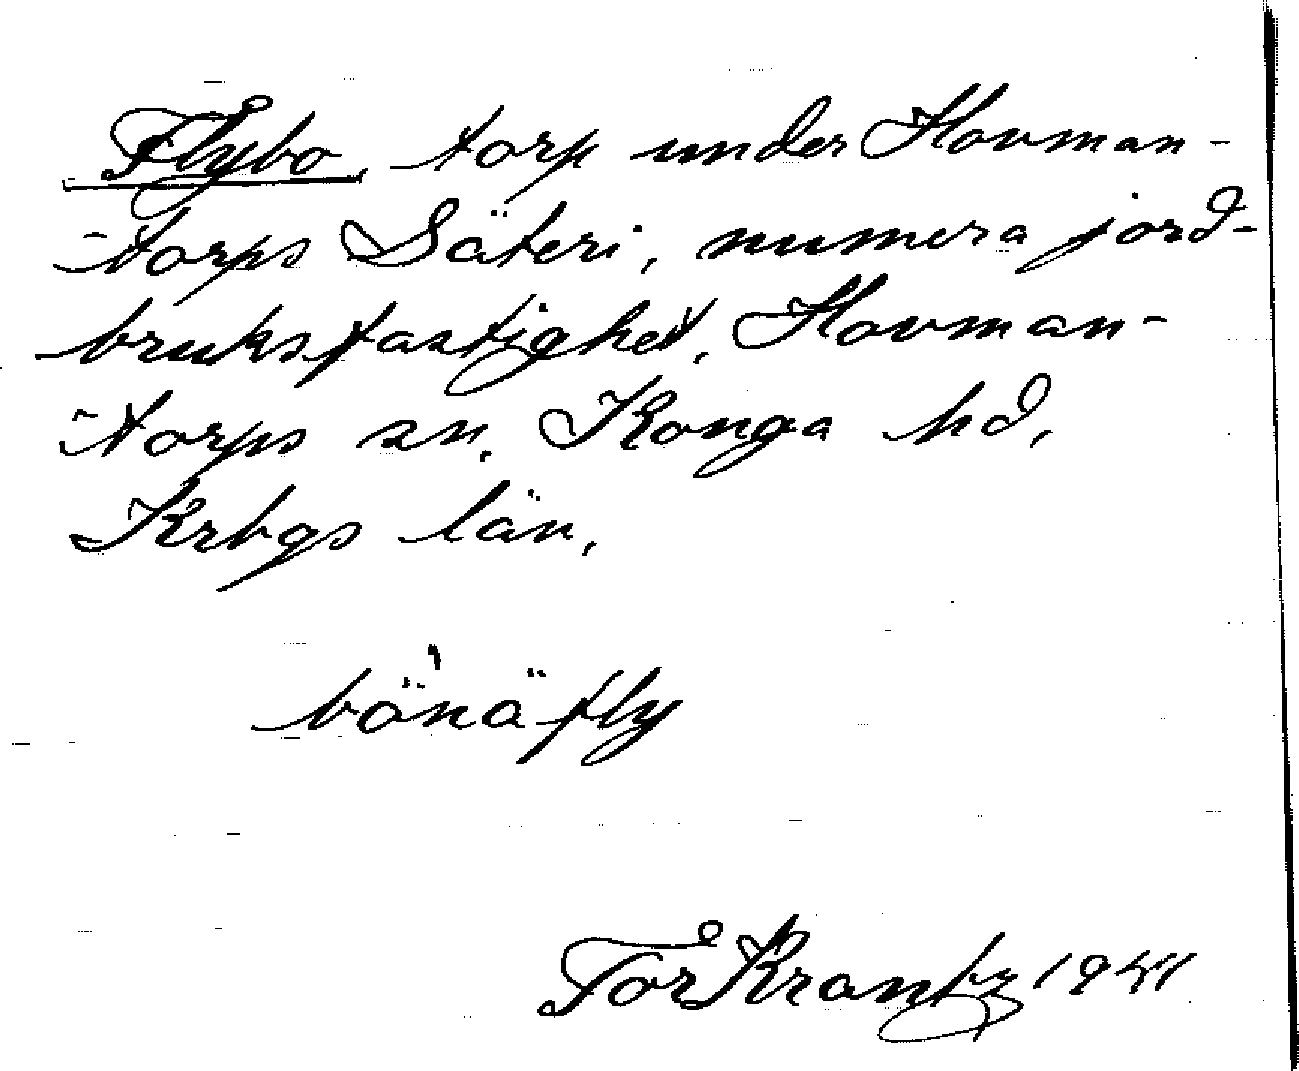 Flybo, torp under Hovman-
torps Säteri, numera jord-
bruksfastighet, Hovman-
torps sn, Konga hd,
Krbgs län,
Tor Krantz 1941